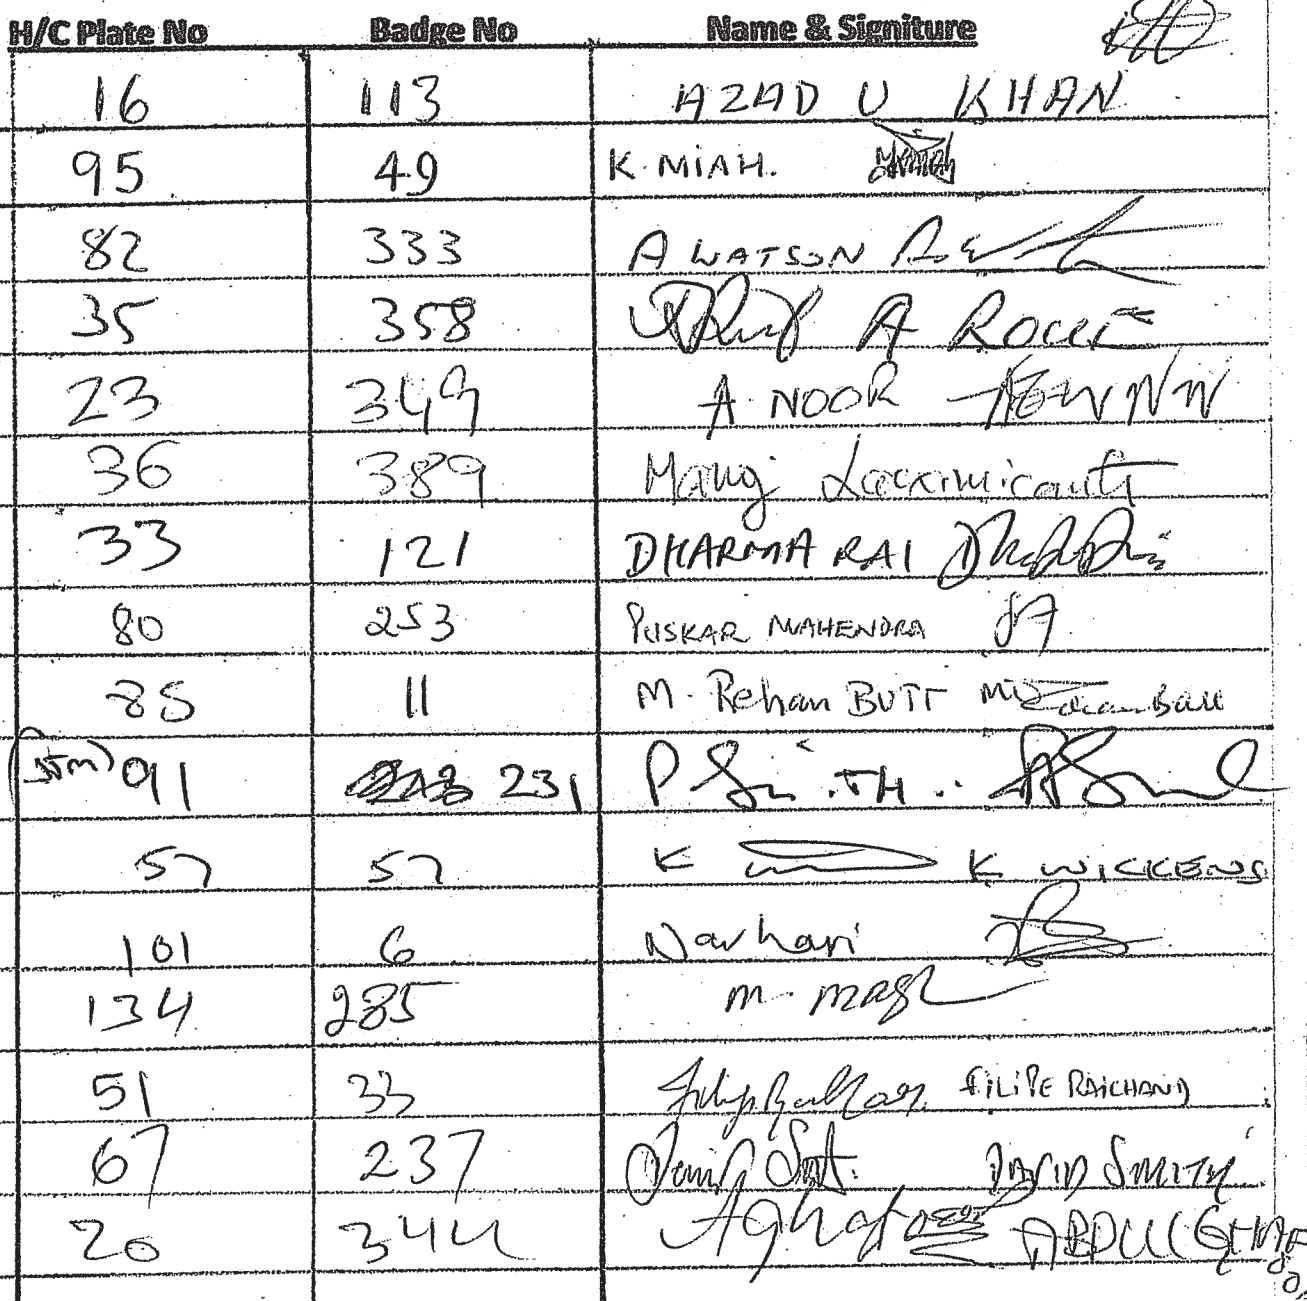 H/C Plate No Badge No Name & Signiture
16 113 AZAD U KHAN
95 49 K. MIAH.
82 333 A WATSON
35 358 A ROWE
23 349 A NOOR
36 389
33 121 DHARMA RAI
80 253 PUSKAR MAHENDRA
85 11 M. Rehan BUTT
91 231 P SmiTH
57 57 K K WICKENS
101 6 Narhari
134 285 M.
51 33 FILIPE RAICHAND
67 237 DAVID SMITH
20 344 ABDUL